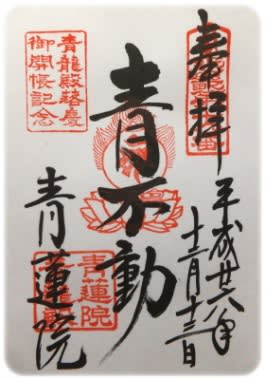 奉拝
平成廿六年
十二月十三日
青不動
青蓮院
青龍殿落慶
御開帳記念
青蓮院